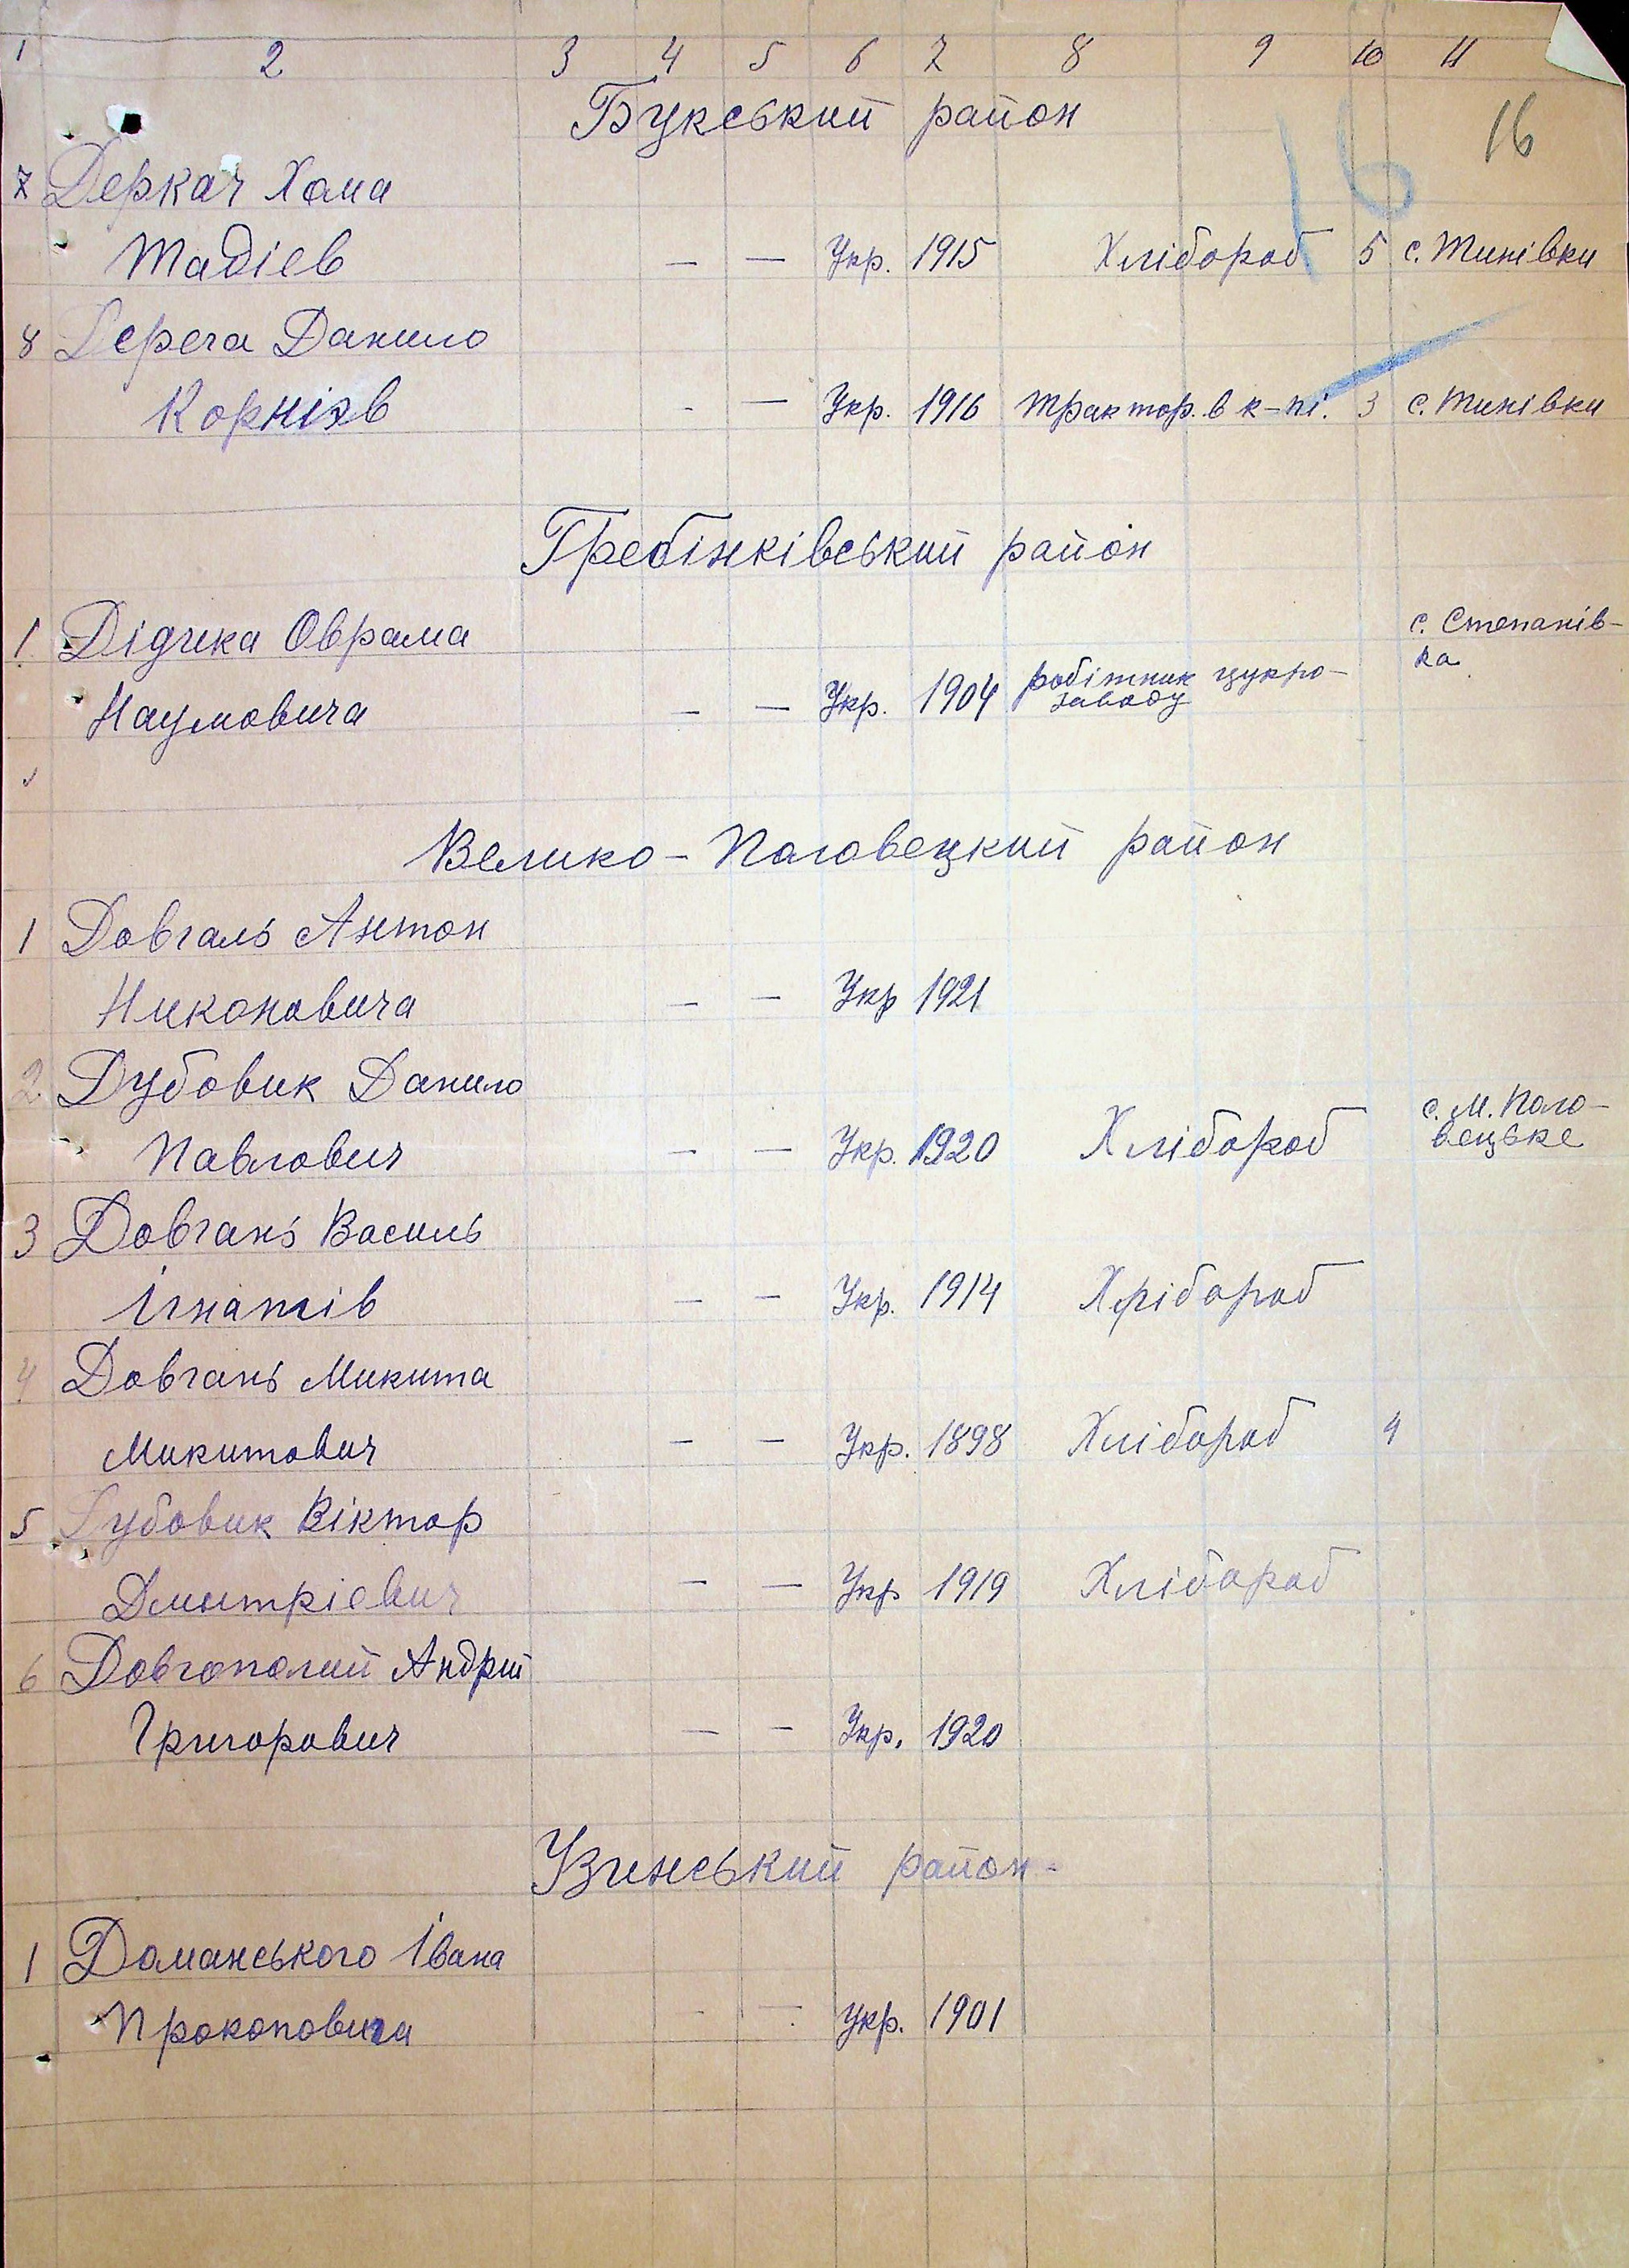 1 2 3 4 5 6 7 8 9 10 11
Букський район
16 16
7 Деркач Хома
Тадіев — — Укр. 1915 Хлібороб 5 с. Тинівки
8 Дереча Данило
Корніїв - — Укр. 1916 трактор. в к-пі. 3 с. Тинівки
Гребінківський район
1 Дідчека Оврама с. Степанів-
ка
Наумовича — — Укр. 1904 робітник цукро-
заводу
Велико-Половецкий район
1 Довгаль Антон
Никоновича — — Укр 1921
2 Дубовик Данило
с. М. Поло-
Павлович — — Укр. 1920 Хлібороб вецьке
3 Довгань Василь
Ігнатів — — Укр. 1914 Хлібороб
4 Довгань Микита
Микитович — — Укр. 1898 Хлібороб 4
5 Дубовик Віктор
Дмитріевич — — Укр 1919 Хлібороб
6 Довгополий Андрій
Григорович — — Укр. 1920
Узинський район
1 Доманського Івана
Прокоповича — — Укр. 1901